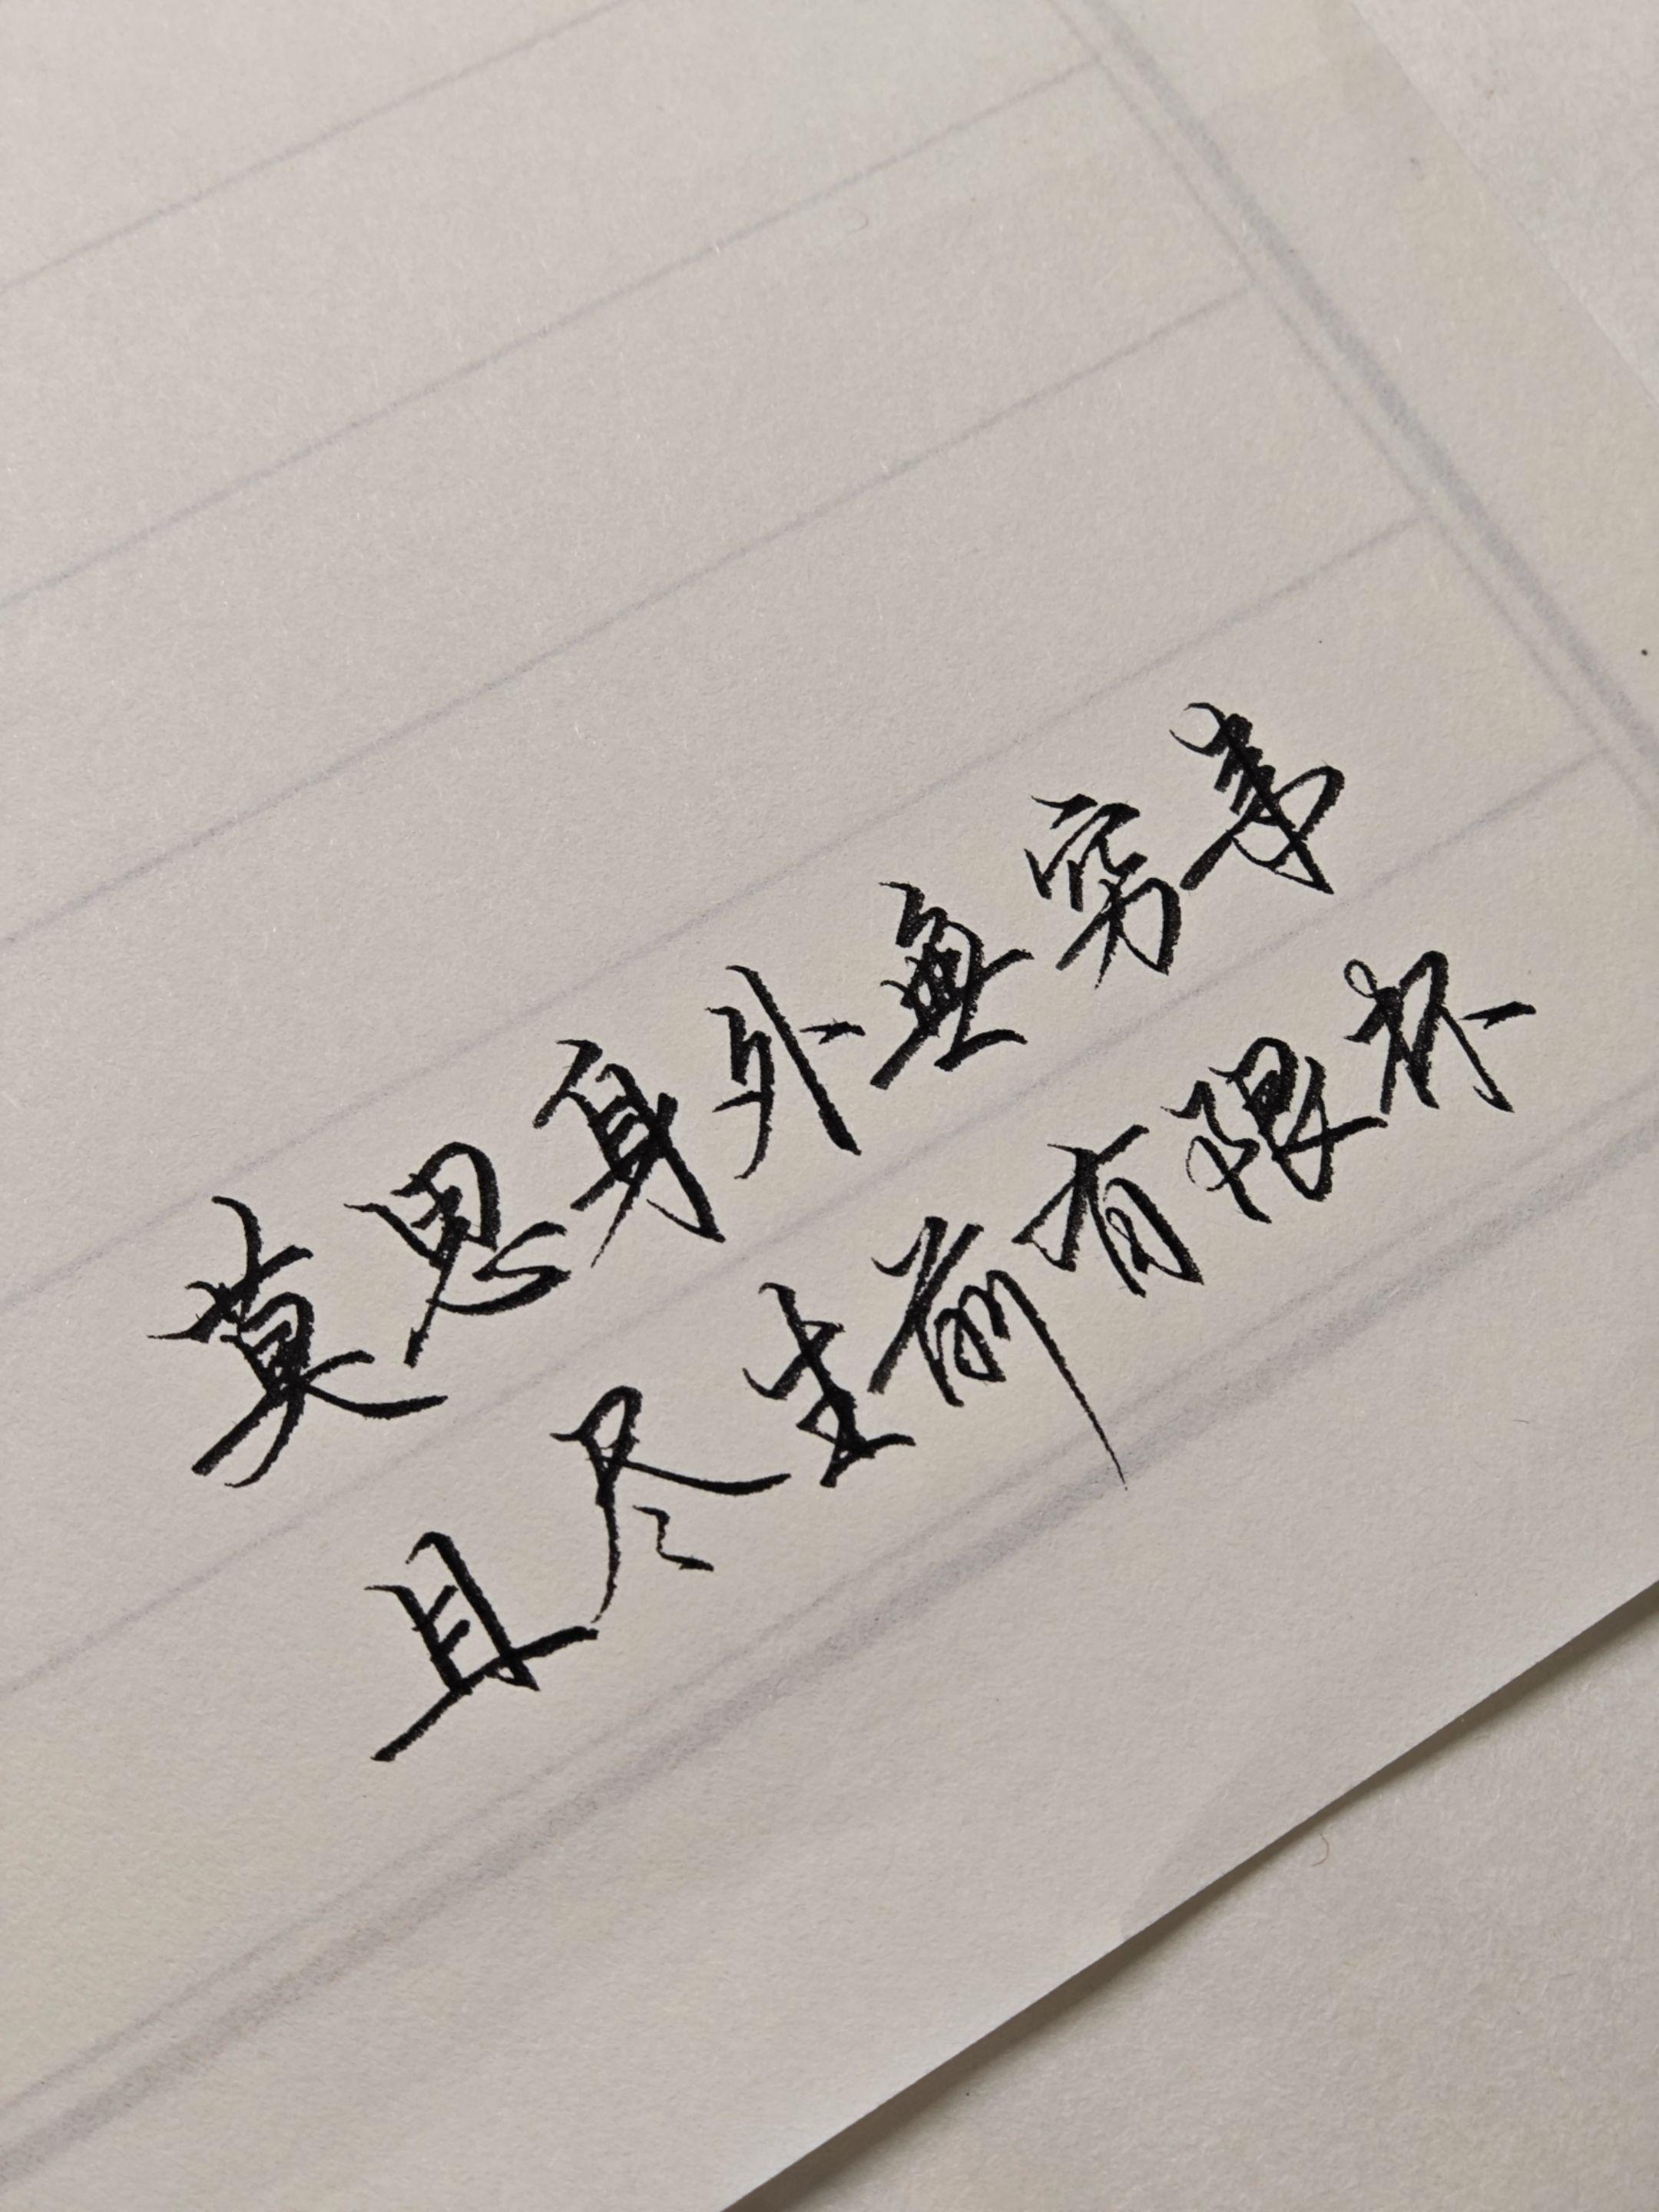 莫思身外无穷事
且尽生前有限杯